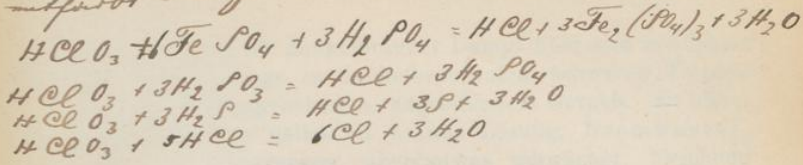 HClO₃ + 6FeSO₄ + 3H₂SO₄ = HCl + 3Fe₂(SO₄)₃ + 3H₂O
HClO₃ + 3H₂SO₃ = HCl + 3H₂SO₄
HClO₃ + 3H₂S = HCl + 3S + 3H₂O
HClO₃ + 5HCl = 6Cl + 3H₂O